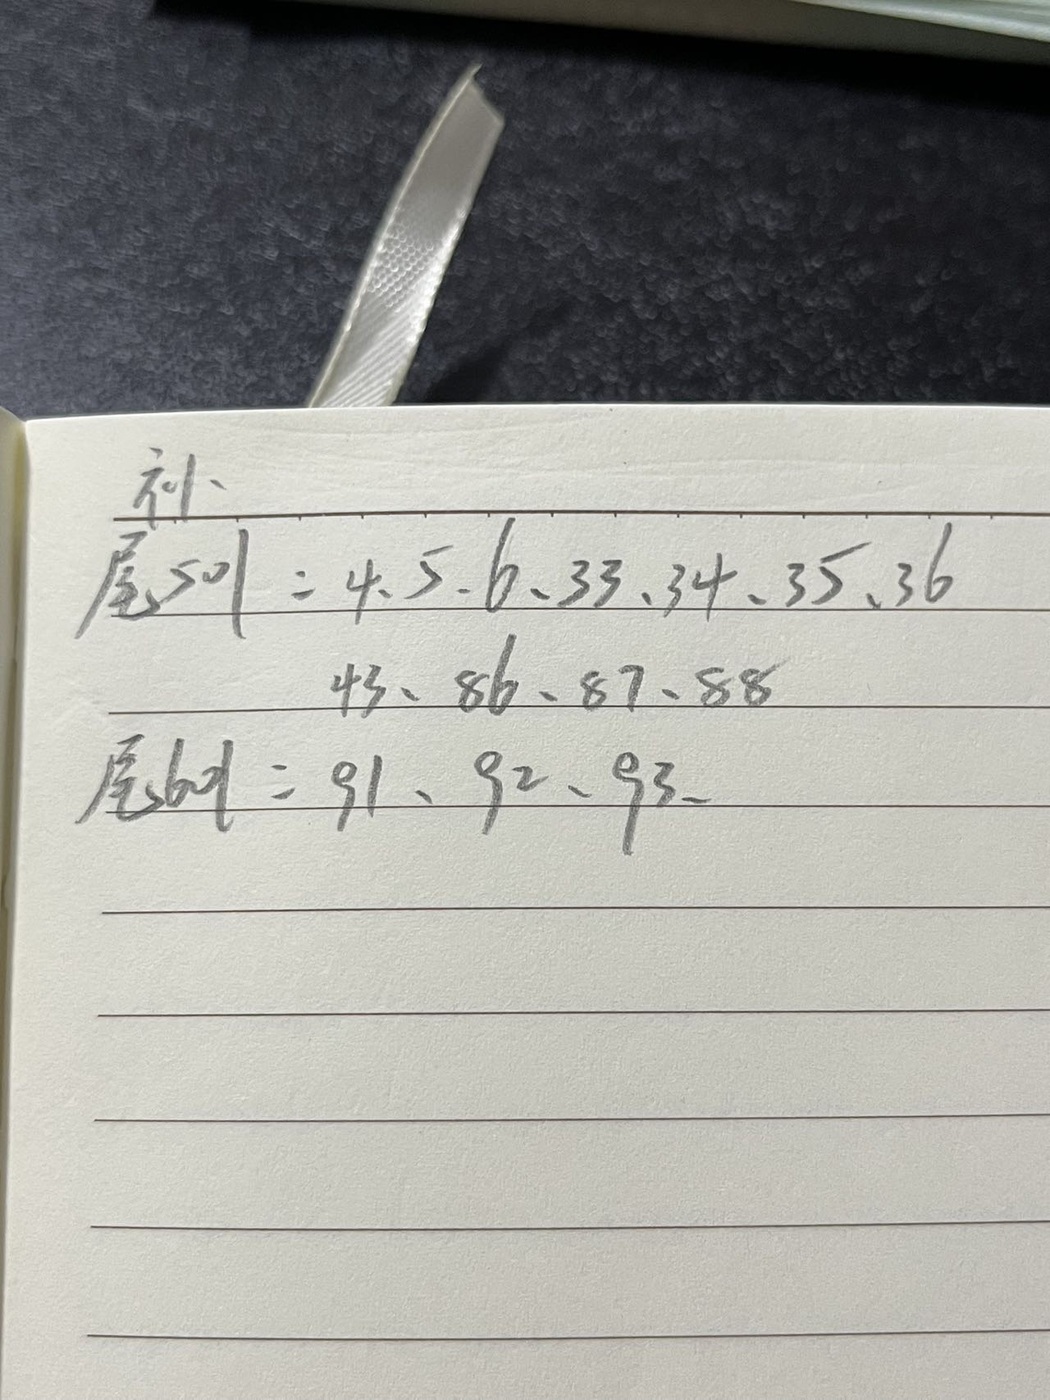 补、
尾501：4、5、6、33、34、35、36
43、86、87、88
尾601：91、92、93、